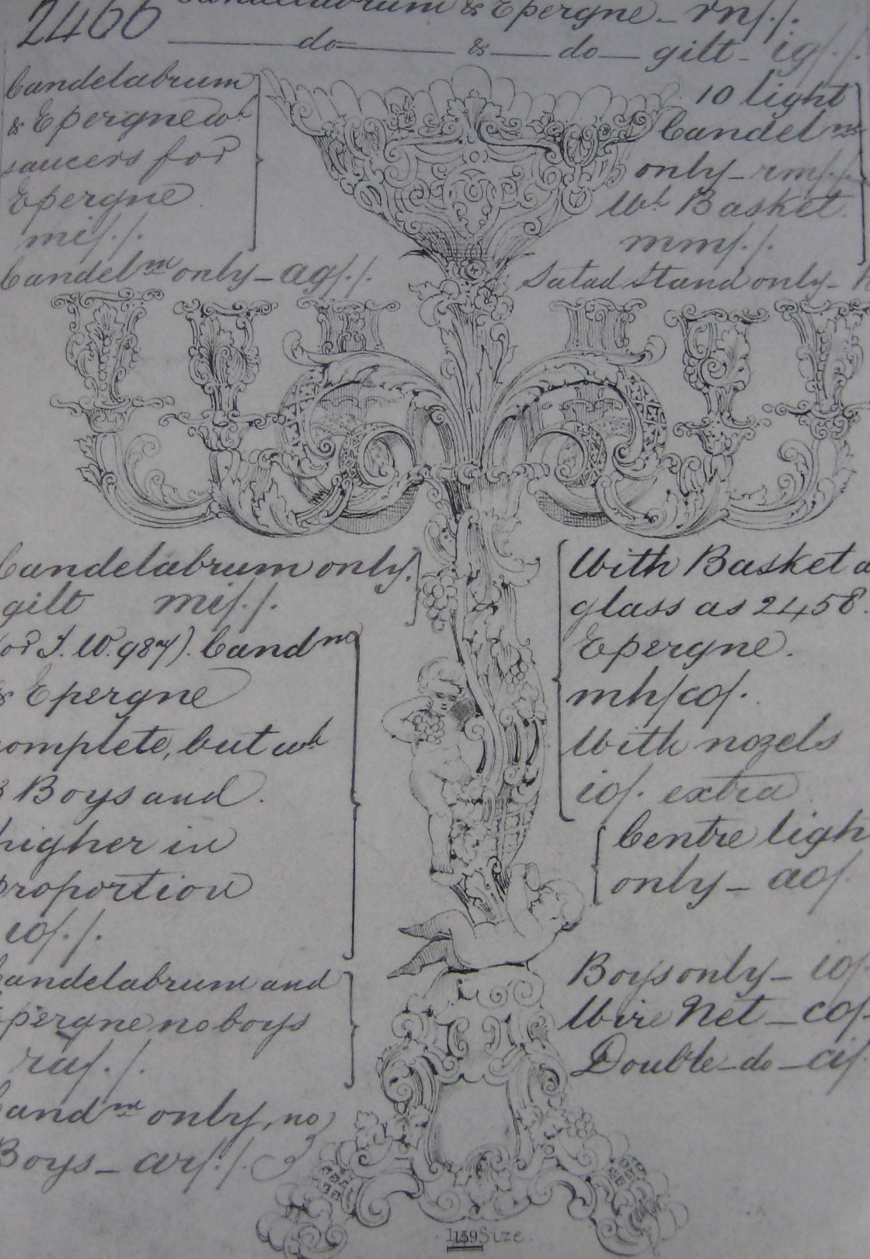 2466 Candelabrum & Epergne – rn/./.
do & do gilt – ig/./.
Candelabrum
& Epergne wh
saucers for
Epergne
mi/./.
Candelm only – ag/./.
10 light
Candelm
only – rm/./.
Wh Basket
mm/./.
Salad Stand only –
Candelabrum only
gilt mi/./.
(or S. W. 987). Candm
& Epergne
complete, but wh
3 Boys and
higher in
proportion
io/./.
Candelabrum and
Epergne no boys
ra/./.
Candm only, no
Boys – ar/./.
With Basket
glass as 2458.
Epergne.
mh/co/.
With nozels
io/. extra
Centre ligh
only – ao/.
Boys only – io/.
Wire Net – co/.
Double – do – ci/.
Size